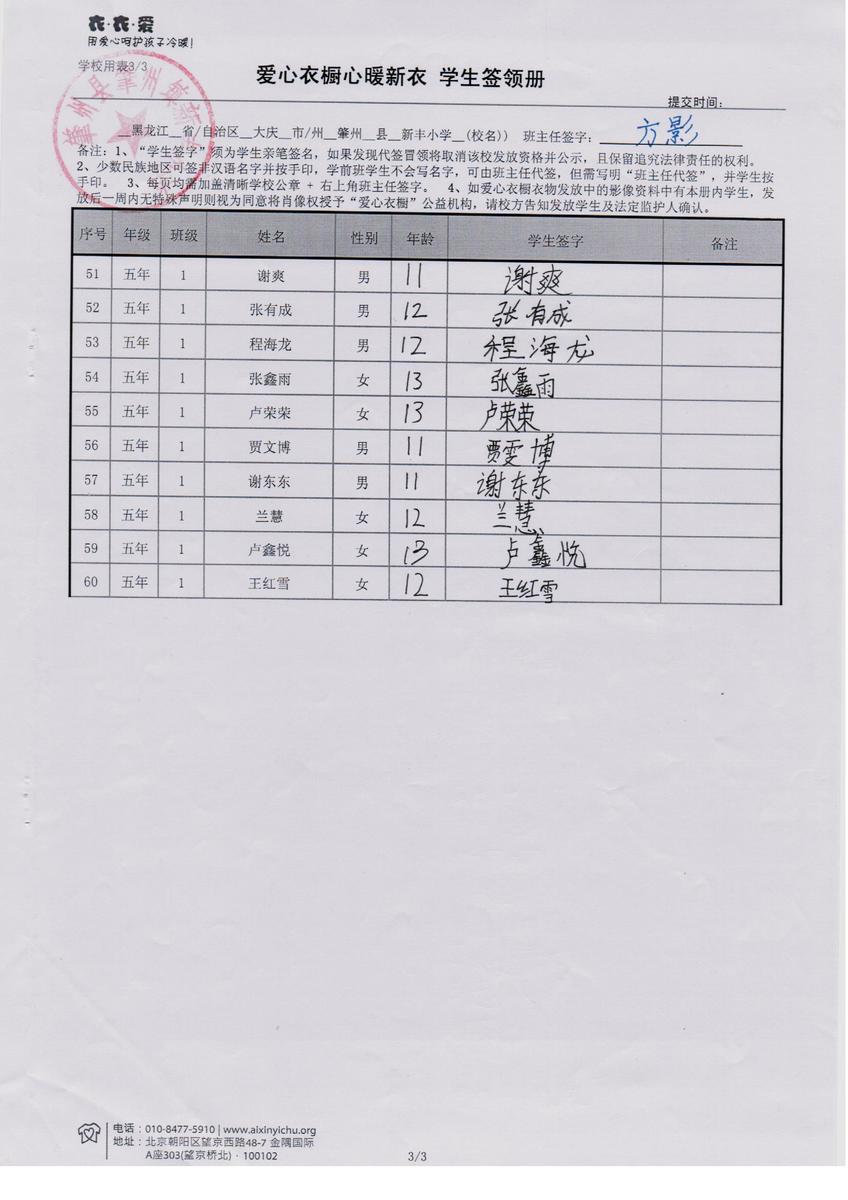 衣·衣·爱
用爱心呵护孩子冷暖!
学校用表3/3
肇州县肇州镇新
爱心衣橱心暖新衣 学生签领册
提交时间:
__黑龙江__省/自治区__大庆__市/州__肇州__县__新丰小学__(校名)) 班主任签字: 方影
备注:1、“学生签字”须为学生亲笔签名,如果发现代签冒领将取消该校发放资格并公示,且保留追究法律责任的权利。
2、少数民族地区可签非汉语名字并按手印,学前班学生不会写名字,可由班主任代签,但需写明“班主任代签”,并学生按
手印。 3、每页均需加盖清晰学校公章 + 右上角班主任签字。 4、如爱心衣橱衣物发放中的影像资料中有本册内学生,发
放后一周内无特殊声明则视为同意将肖像权授予“爱心衣橱”公益机构,请校方告知发放学生及法定监护人确认。
序号 年级 班级 姓名 性别 年龄 学生签字 备注
51 五年 1 谢爽 男 11 谢爽
52 五年 1 张有成 男 12 张有成
53 五年 1 程海龙 男 12 程海龙
54 五年 1 张鑫雨 女 13 张鑫雨
55 五年 1 卢荣荣 女 13 卢荣荣
56 五年 1 贾文博 男 11 贾雯博
57 五年 1 谢东东 男 11 谢东东
58 五年 1 兰慧 女 12 兰慧
59 五年 1 卢鑫悦 女 13 卢鑫悦
60 五年 1 王红雪 女 12 王红雪
电话:010-8477-5910 | www.aixinyichu.org
地址:北京朝阳区望京西路48-7 金隅国际
A座303(望京桥北)· 100102
3/3